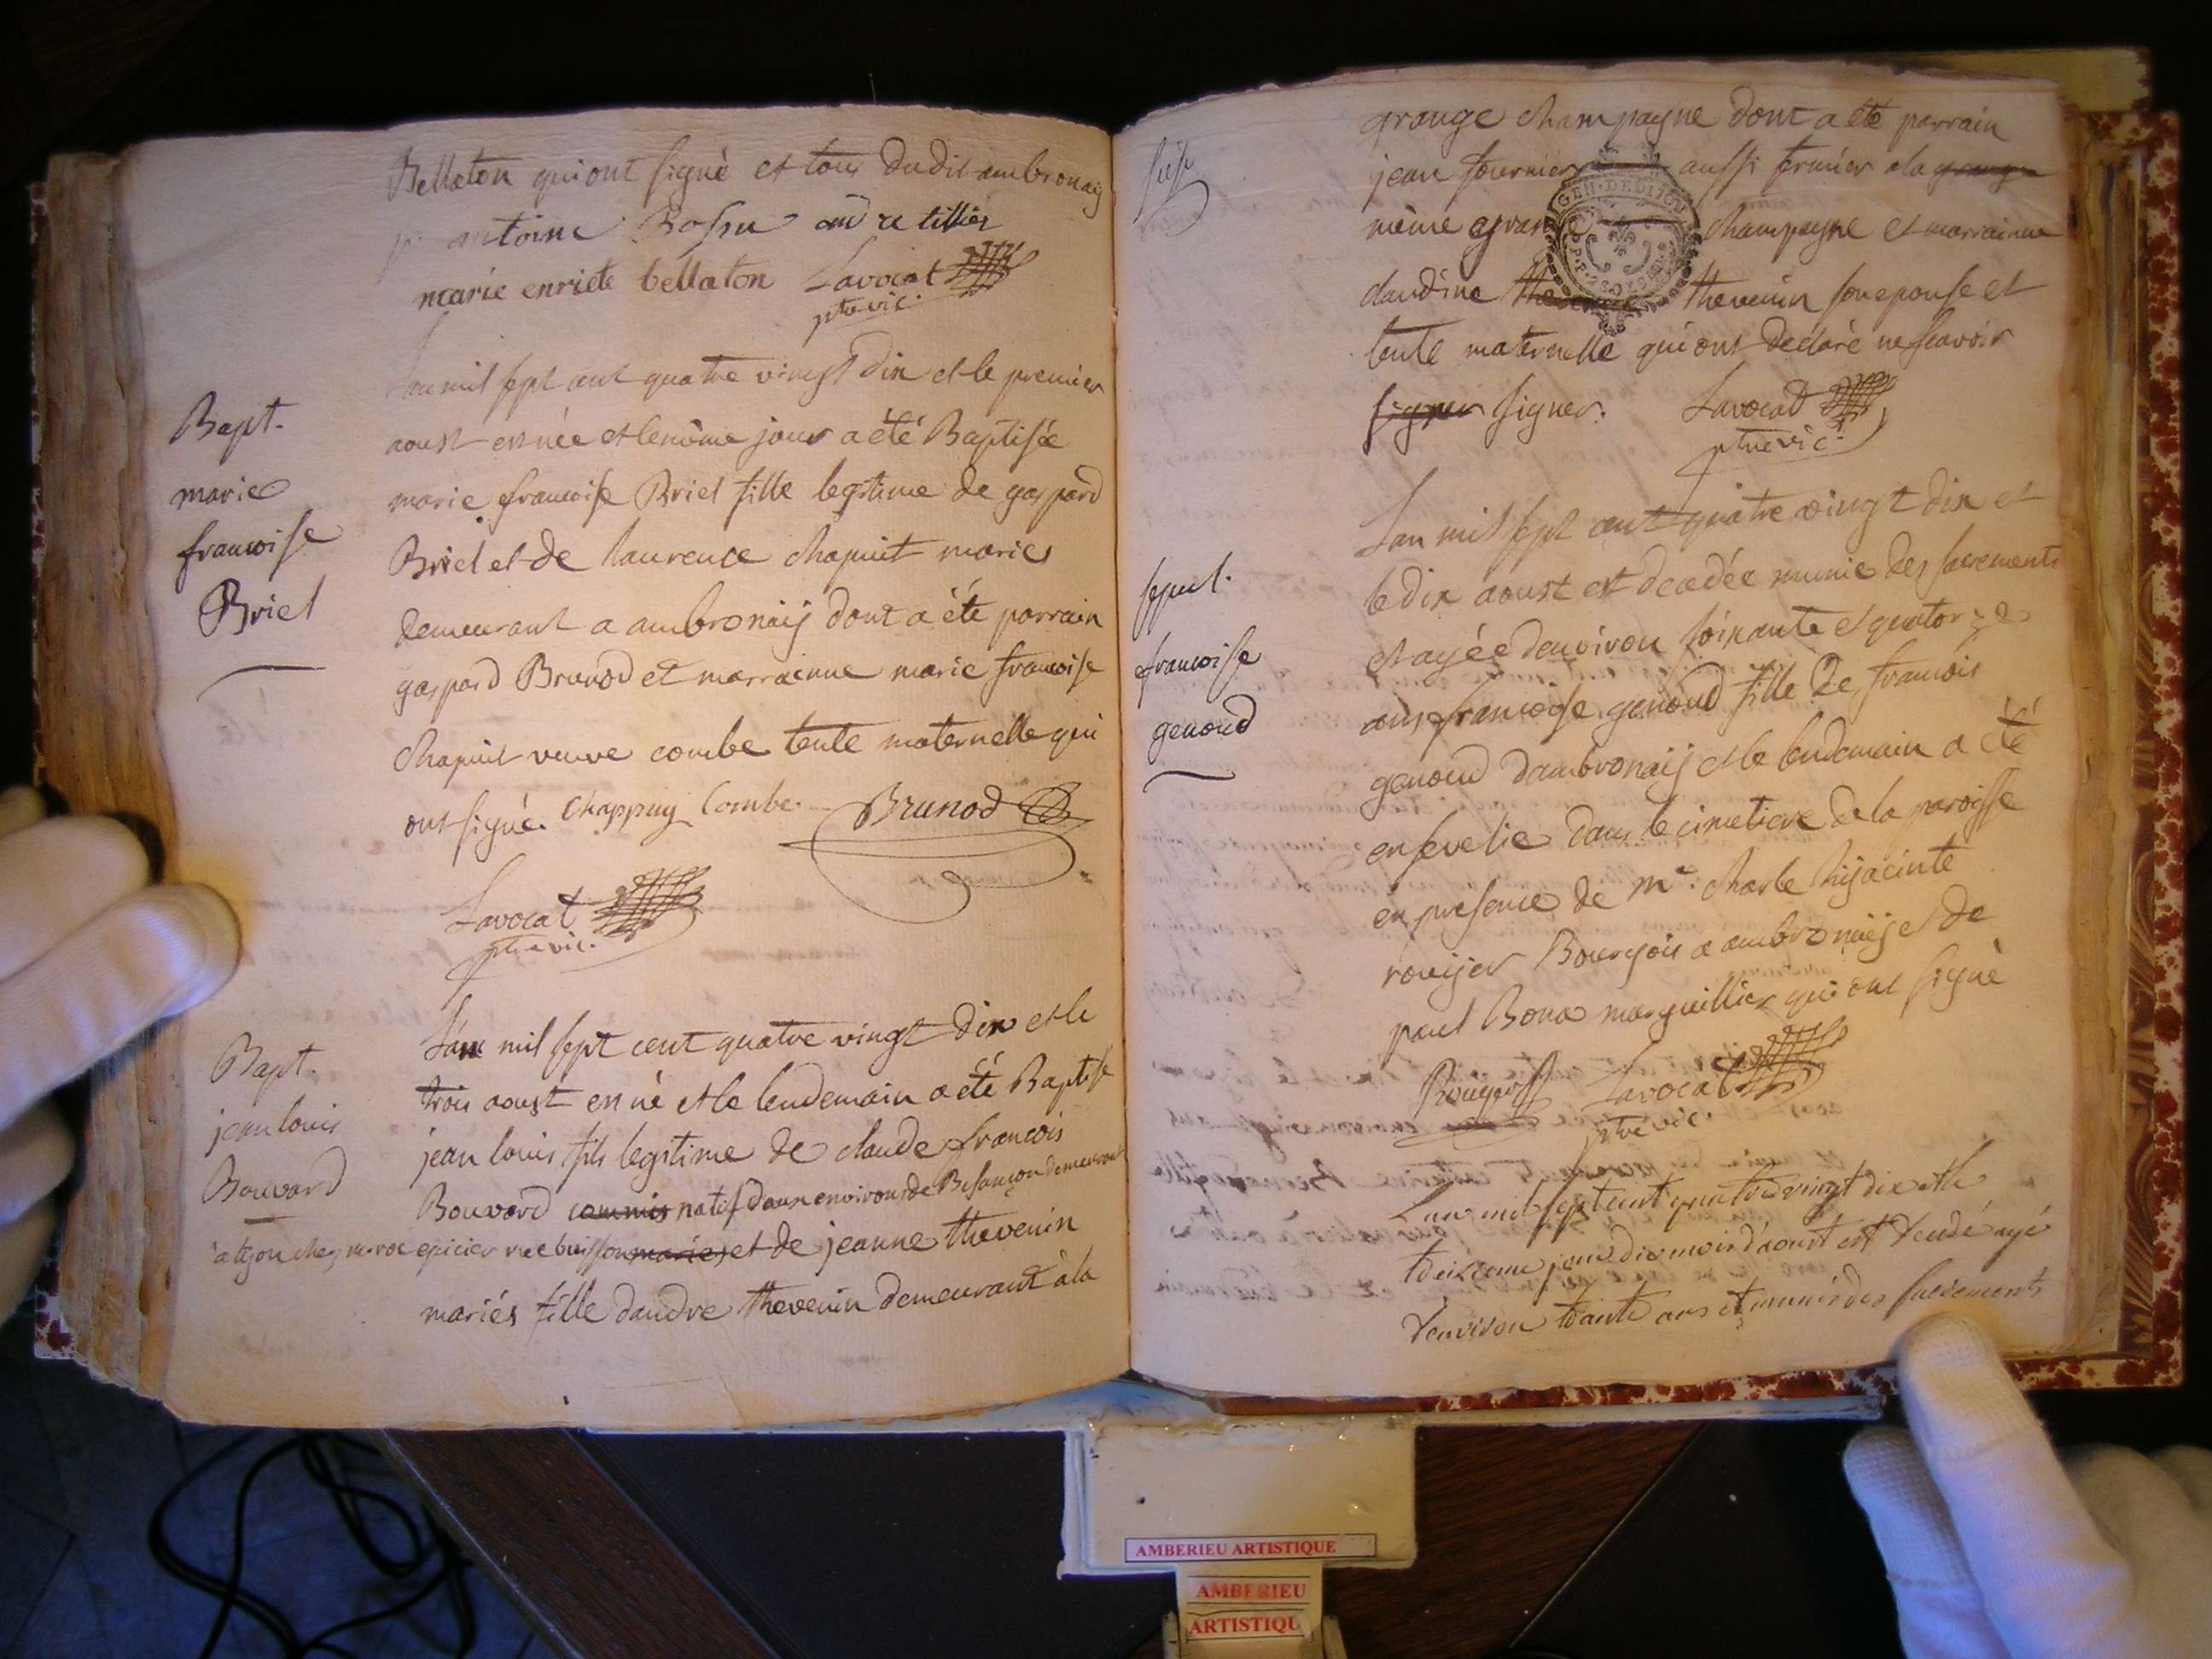 Bellaton qui ont signé et tous dudit ambronay
antoine Bossu andre tillier
marie enriete bellaton Lavocat
ptre vic.
Lan mil sept cent quatre vingt dix et le premier
Bapt.
aoust est née et le même jour a été Baptisée
marie
marie francoise Briel fille legitime de gaspard
francoise
Briel et de laurence chapuit mariés
Briel
demeurant a ambronaij dont a été parrain
gaspard Brunod et marrainne marie francoise
chapuit veuve combe tente maternelle qui
ont signé. chappuy Combe. Brunod
Lavocat
ptre vic.
Bapt.
L'an mil sept cent quatre vingt dix et le
trois aoust est né et le lendemain a été Baptisé
jean louis
jean louis fils legitime de claude francois
Bouvard
Bouvard commis natif d'aux environs de Besançon demeurant
à lyon chez mr roc epicier rue buisson mariés et de jeanne thevenin
mariés fille dandre thevenin demeurant à la
grange champagne dont a été parrain
jean fournier aussi fermier a la grange
même grange champagne et marrainne
claudine thevenin thevenin son epouse et
tente maternelle qui ont declaré ne scavoir
signer signer. Lavocat
ptre vic.
Lan mil sept cent quatre vingt dix et
sepul.
le dix aoust est decedée munie des sacrements
francoise
et agée denviron soixante et quatorze
genoud
ans francoise genoud fille de francois
genoud dambronaij et le lendemain a été
ensevelie dans le cimetiere de la paroisse
en presence de mr. charle hijacinte
rouijer Bourgois a ambronaij et de
paul Bona marguillier qui ont signé
Rouyer Lavocat
ptre vic.
L'an mil sept cent quatre vingt dix et le
treizieme jour du mois d'aoust est decedé agé
d'environ trante ans et munis des sacrements
GEN. DE DIJON
AMBERIEU ARTISTIQUE
AMBERIEU
ARTISTIQU